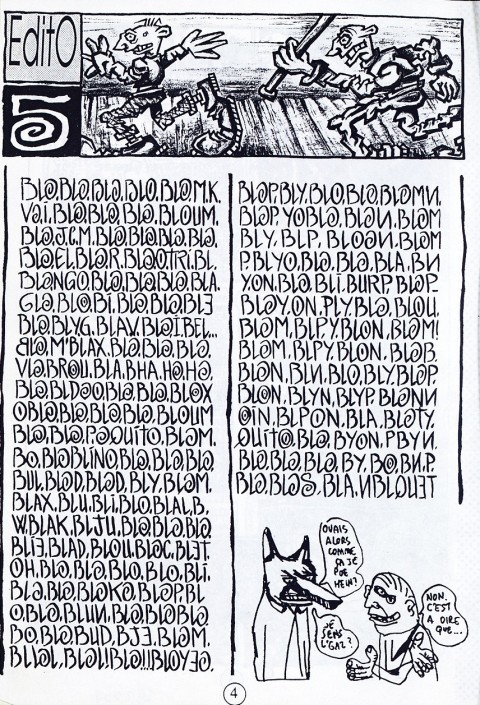 EditO
5
BLa,BLa,BLa,BLO,BLaM.K.
Vai.BLa,BLa,BLa.BLOUM.
BLa,J.C.M.BLa.BLa,BLa,BLa,
BLa,EL,BLa.R.BLaOTRi.BL.
BLaNGO.BLa,BLa,BLa,BLA.
GLa.BLOBi.BLa,BLa,BLE
BLa,BLYG.BLAV.BLaI.BEL...
BLa,M'BLAX.BLa.BLa,BLa.
VLa,BROU.BLA,BHA.HO,HO,
BLa,BLDaO,BLa,BLa,BLOX
OBLa,BLa,BLa,BLa,BLOUM
BLa,BLa,PaQUiTO,BLaM.
BO,BLaBLiNO,BLa,BLa,BLa,
BUL,BLaD,BLaD,BLY.BLaM,
BLAX,BLU.BLi.BLO,BLAL,B,
W,BLAK,BLJU,BLa,BLa,BLa
BLiE,BLAD,BLOU,BLaC,BLET.
OH,BLa,BLa,BLO,BLO,BLi,
BLa,BLa,BLaKa,BLaP,BLO
O,BLa,BLUN,BLa,BLa,BLa
BO,BLa,BUD,BJE,BLaM,
BLLaL,BLaL!BLa!!BLOYEa.
BLaP,BLY,BLO,BLa,BLaMN.
BLaP.YOBLa,BLaN,BLaM
BLY,BLP,BLOaN.BLaM
P.BLYO,BLa,BLa,BLA,BN
Y.ON,BLa,BLi.BURP,BLaP.
BLaY,ON,PLY,BLa,BLOU.
BLaM,BLP,Y,BLON,BLaM!
BLaM,BLPY,BLON,BLaB.
BLaN,BLN,BLO,BLY,BLaP.
BLON,BLYN,BLYP,BLaNN
OiN,BLPON,BLA,BLaTY.
QUiTa,BLa,BYON,PBYN.
BLa,BLa,BLa,BY,BO,BN.P.
BLa,BLaS,BLA,NBLQUET
OUAIS
ALORS
COMME
ÇA JE
PUE
HEIN?
JE
SENS
L'GAZ?
NON.
C'EST
A DIRE
QUE...
4